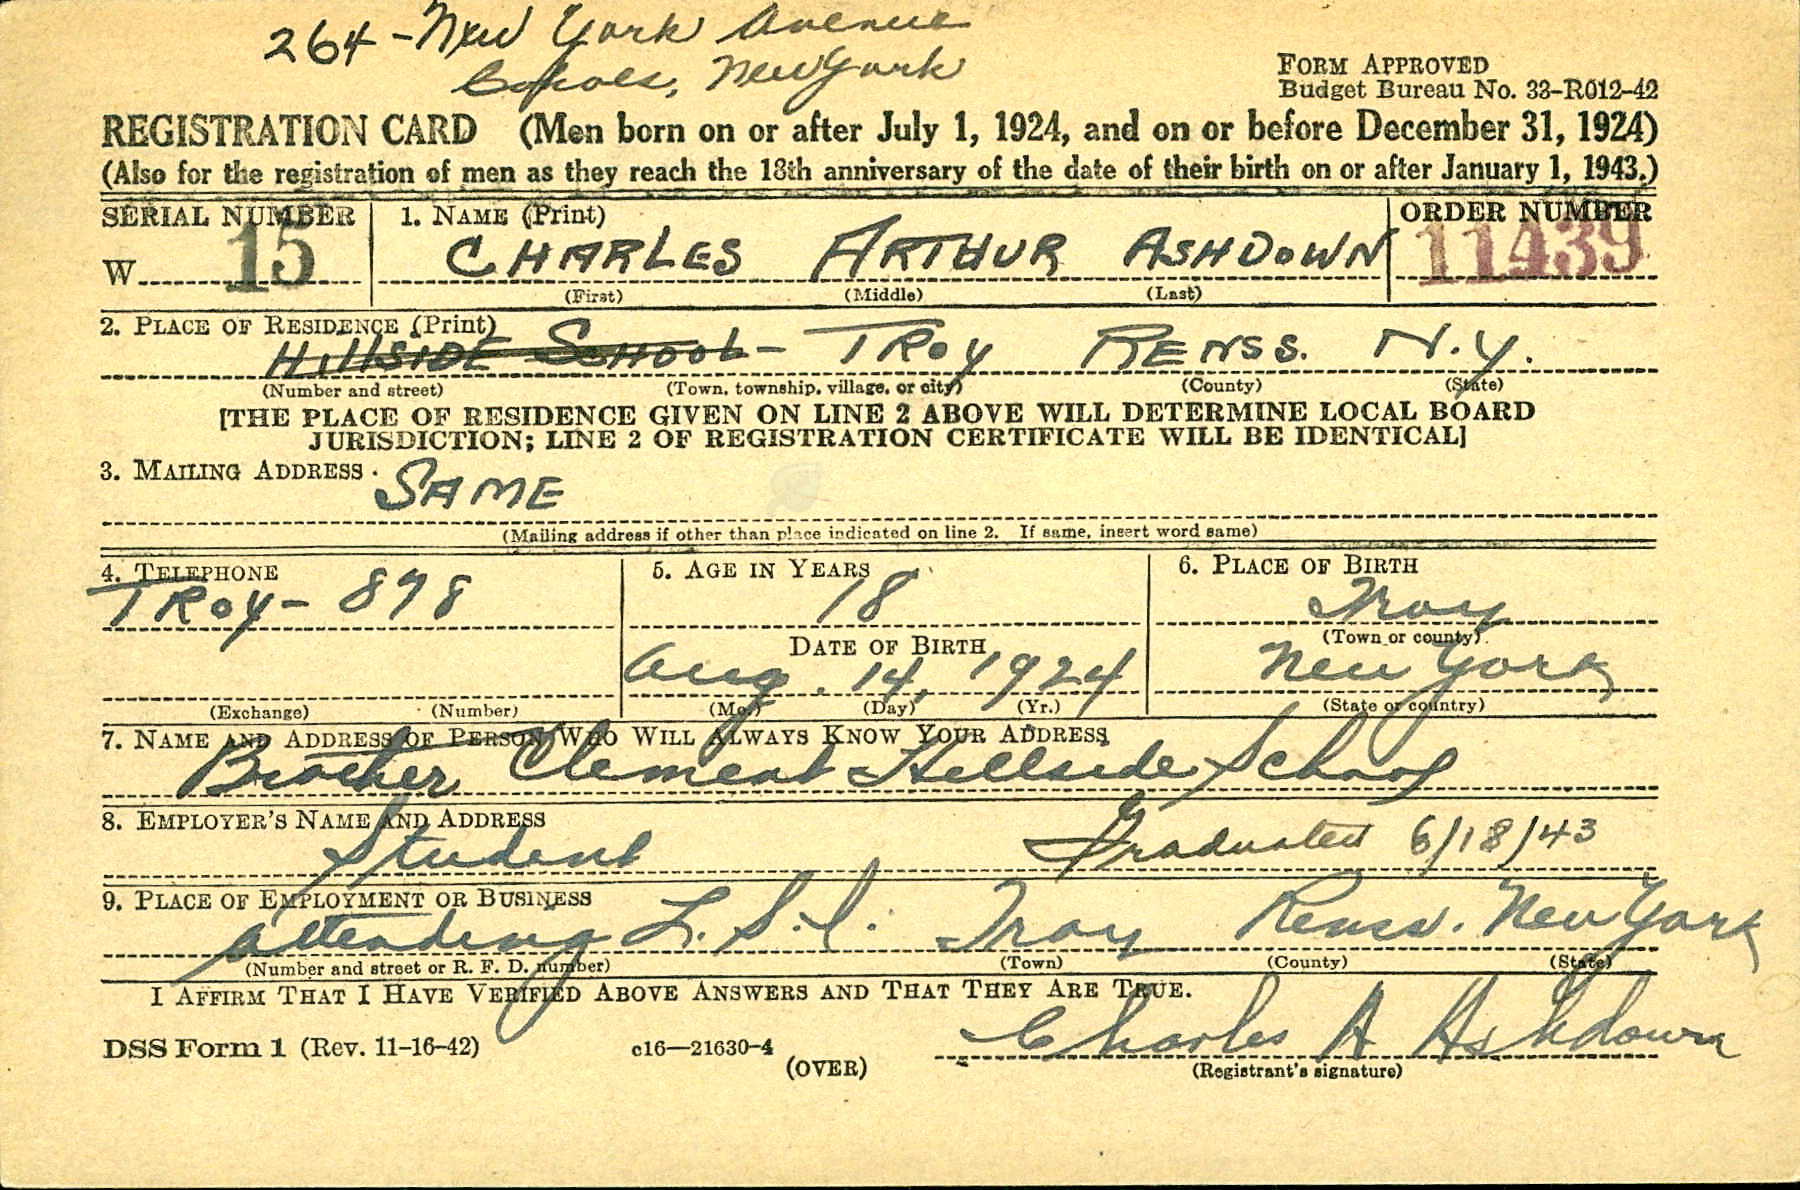 264 - New York Avenue
Cohoes, New York
FORM APPROVED
Budget Bureau No. 33-R012-42
REGISTRATION CARD (Men born on or after July 1, 1924, and on or before December 31, 1924)
(Also for the registration of men as they reach the 18th anniversary of the date of their birth on or after January 1, 1943.)
SERIAL NUMBER 1. NAME (Print) ORDER NUMBER
W 15 CHARLES ARTHUR ASHDOWN 11439
(First) (Middle) (Last)
2. PLACE OF RESIDENCE (Print)
HILLSIDE SCHOOL - TROY RENSS. N.Y.
(Number and street) (Town, township, village, or city) (County) (State)
[THE PLACE OF RESIDENCE GIVEN ON LINE 2 ABOVE WILL DETERMINE LOCAL BOARD
JURISDICTION; LINE 2 OF REGISTRATION CERTIFICATE WILL BE IDENTICAL]
3. MAILING ADDRESS
SAME
(Mailing address if other than place indicated on line 2. If same, insert word same)
4. TELEPHONE 5. AGE IN YEARS 6. PLACE OF BIRTH
TROY - 898 18 Troy
DATE OF BIRTH (Town or county)
Aug. 14, 1924 New York
(Exchange) (Number) (Mo.) (Day) (Yr.) (State or country)
7. NAME AND ADDRESS OF PERSON WHO WILL ALWAYS KNOW YOUR ADDRESS
Brother Clement Hillside School
8. EMPLOYER'S NAME AND ADDRESS
Student Graduated 6/18/43
9. PLACE OF EMPLOYMENT OR BUSINESS
attending L. S. I. Troy Renss. New York
(Number and street or R. F. D. number) (Town) (County) (State)
I AFFIRM THAT I HAVE VERIFIED ABOVE ANSWERS AND THAT THEY ARE TRUE.
DSS Form 1 (Rev. 11-16-42) c16—21630-4 (OVER) Charles A Ashdown
(Registrant's signature)